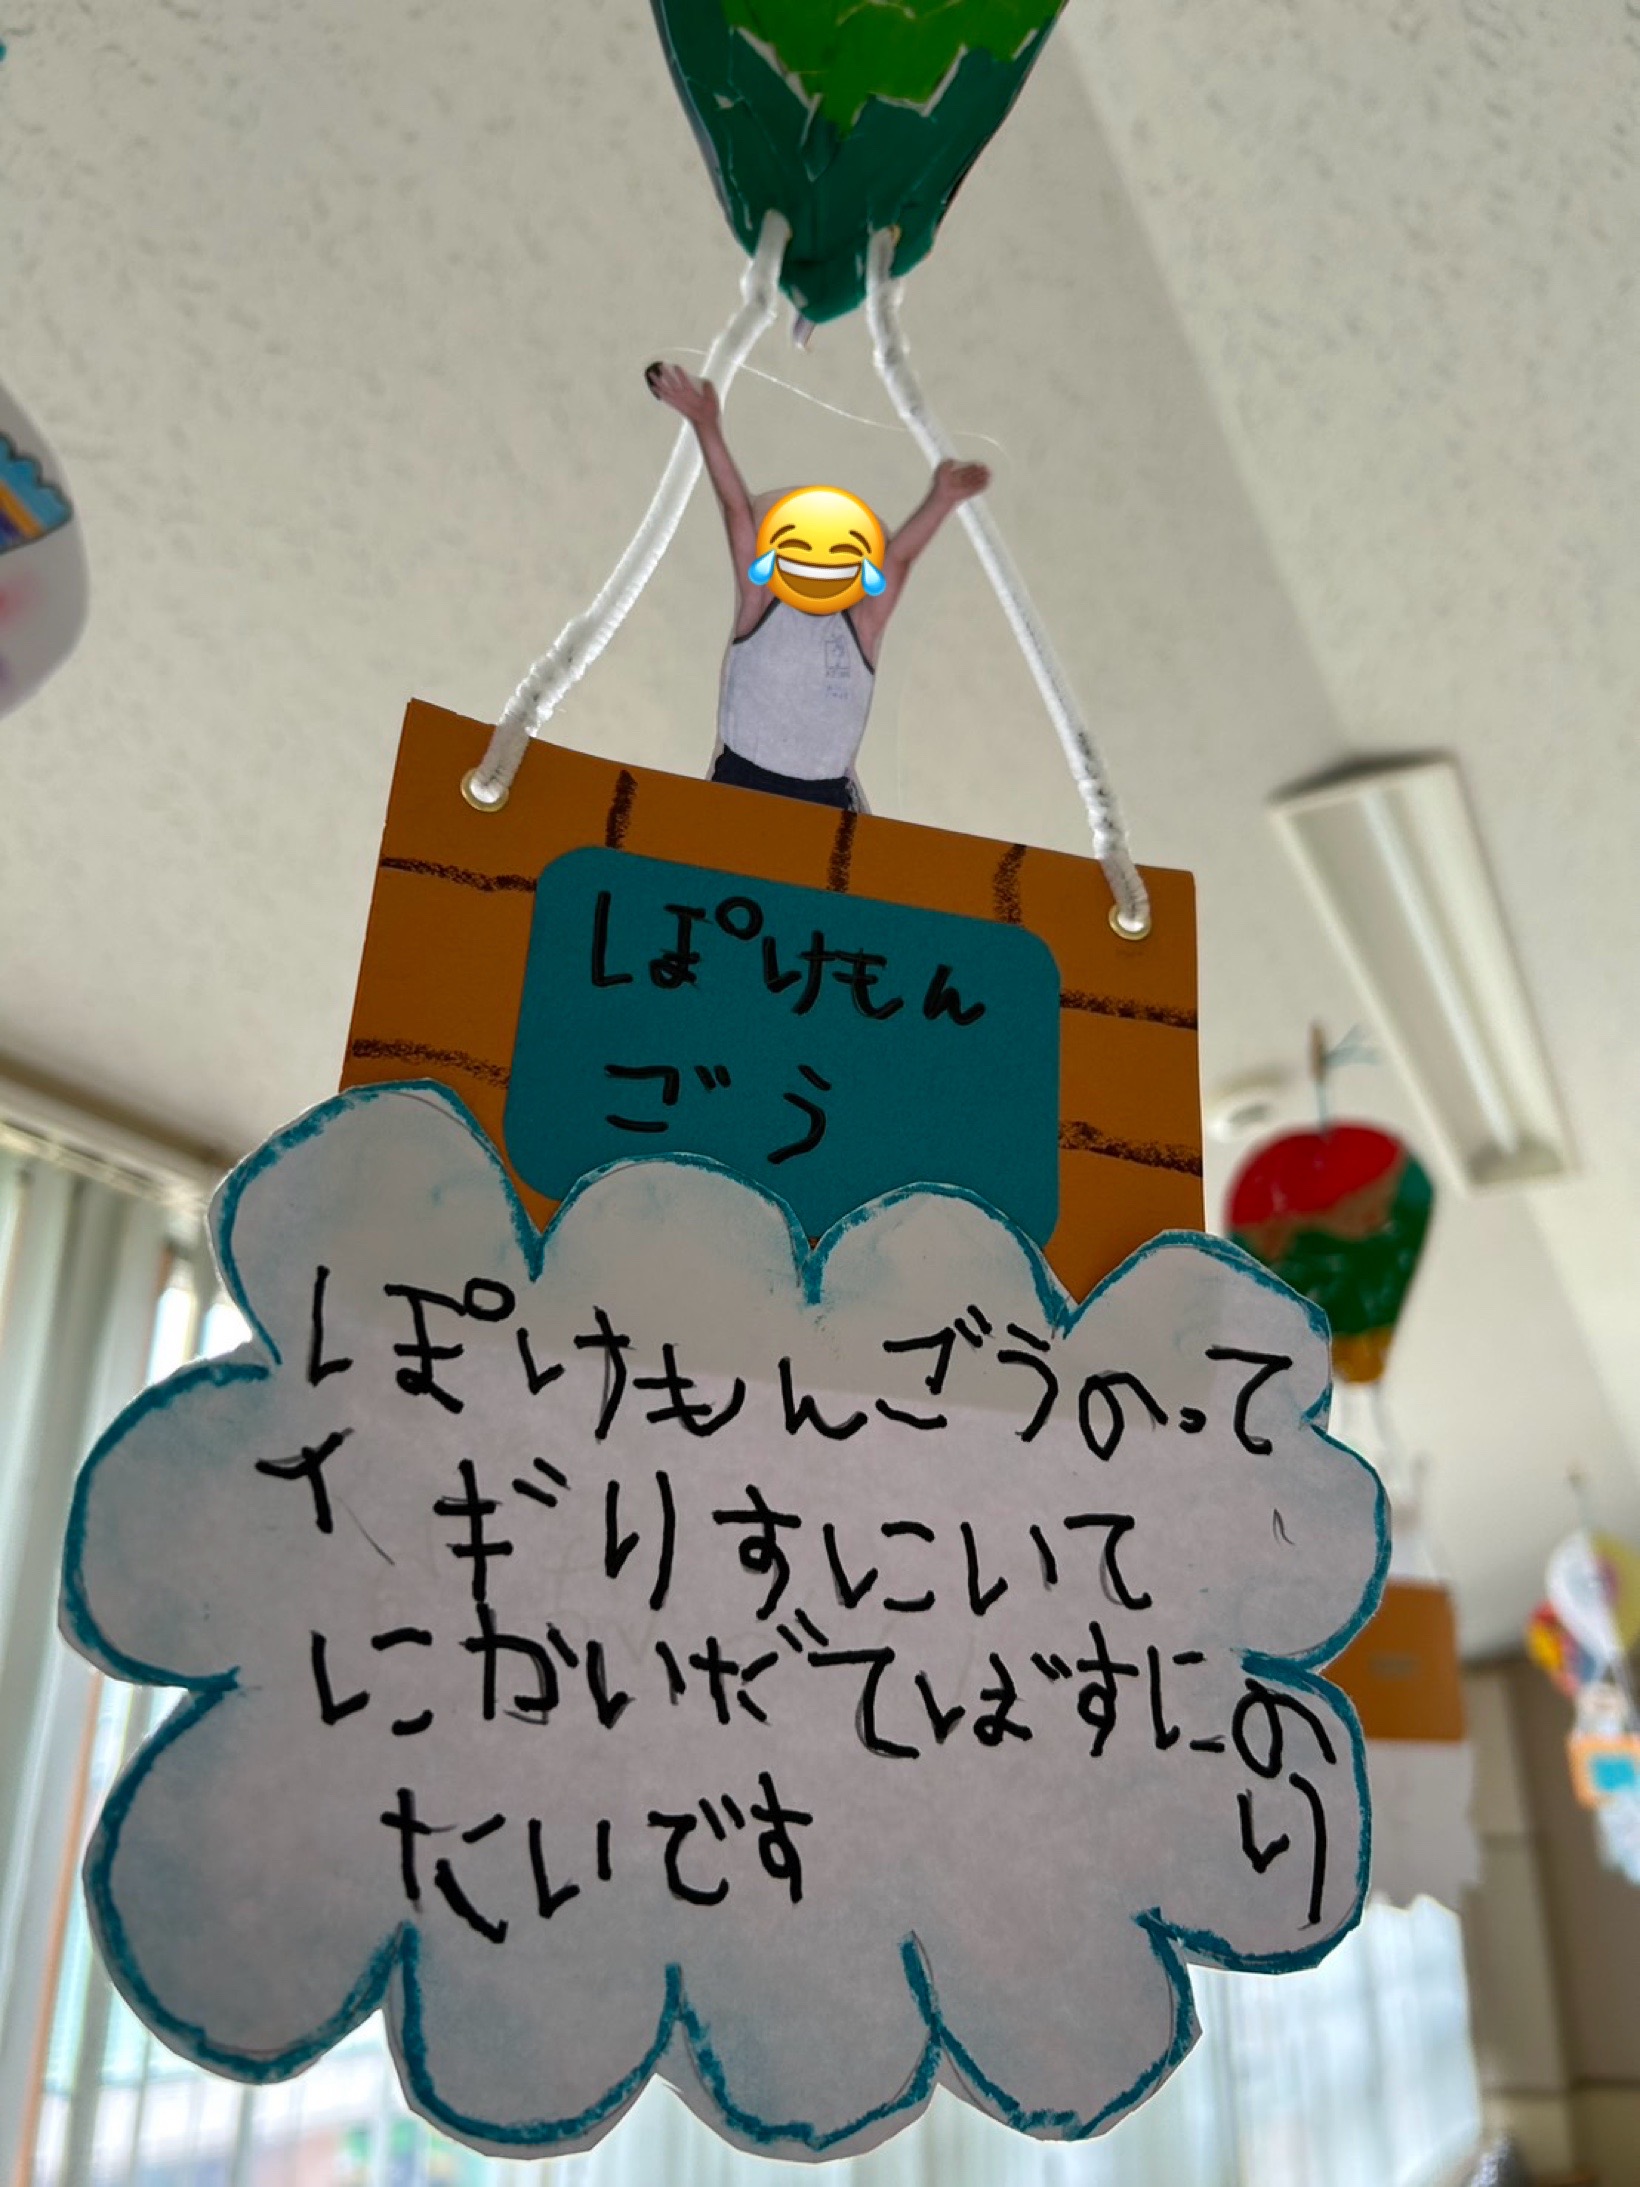 ぽけもん
ごう
ぽけもんごうのって
イギりすにいて
にかいだてばすにのり
たいです